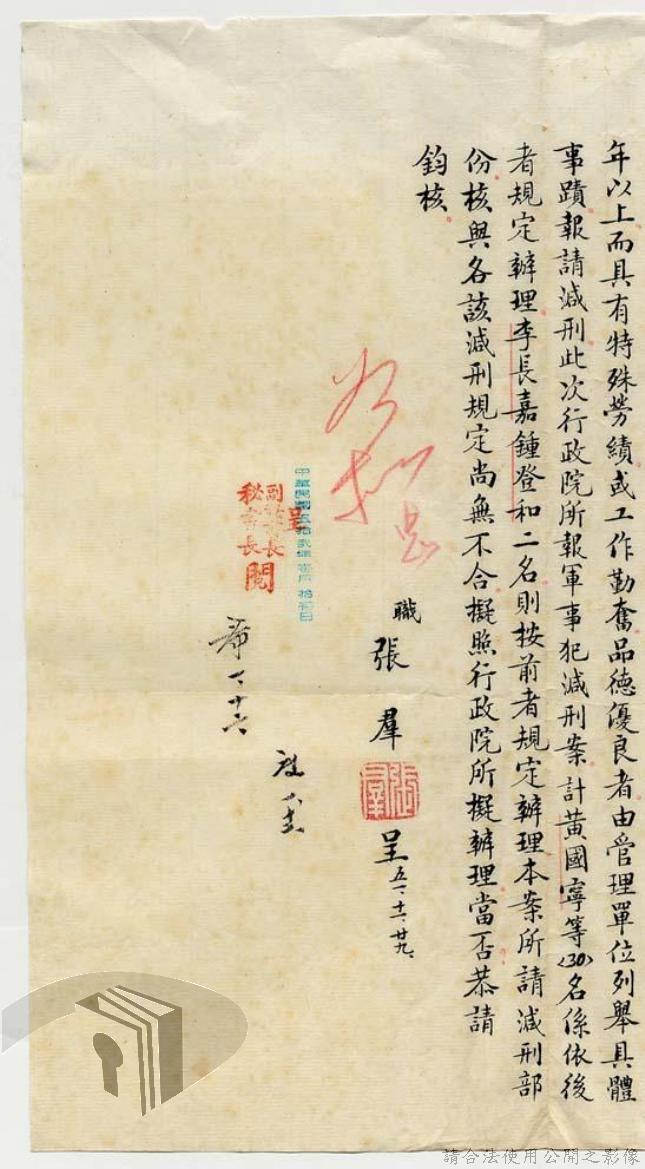 年以上而具有特殊勞績或工作勤奮品德優良者由管理單位列舉具體
事蹟報請減刑此次行政院所報軍事犯減刑案計黃國寧等(30)名係依後
者規定辦理李長嘉鍾登和二名則按前者規定辦理本案所請減刑部
份核與各該減刑規定尚無不合擬照行政院所擬辦理當否恭請
鈞核
職張羣呈五一、十二、廿九、
張羣
呈
副秘書長
秘書長閱
請合法使用公開之影像